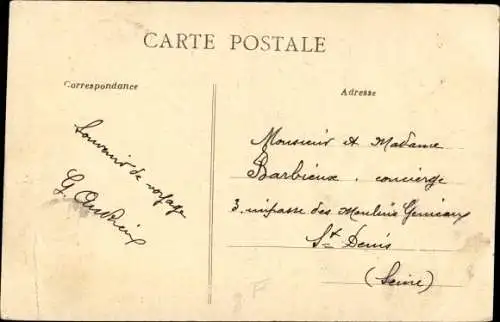 CARTE POSTALE
Correspondance
Adresse
Souvenir de voyage
G
Monsieur et Madame
Barbieux, concierge
3. impasse des Moulins Gémeaux
St Denis
(Seine)
F